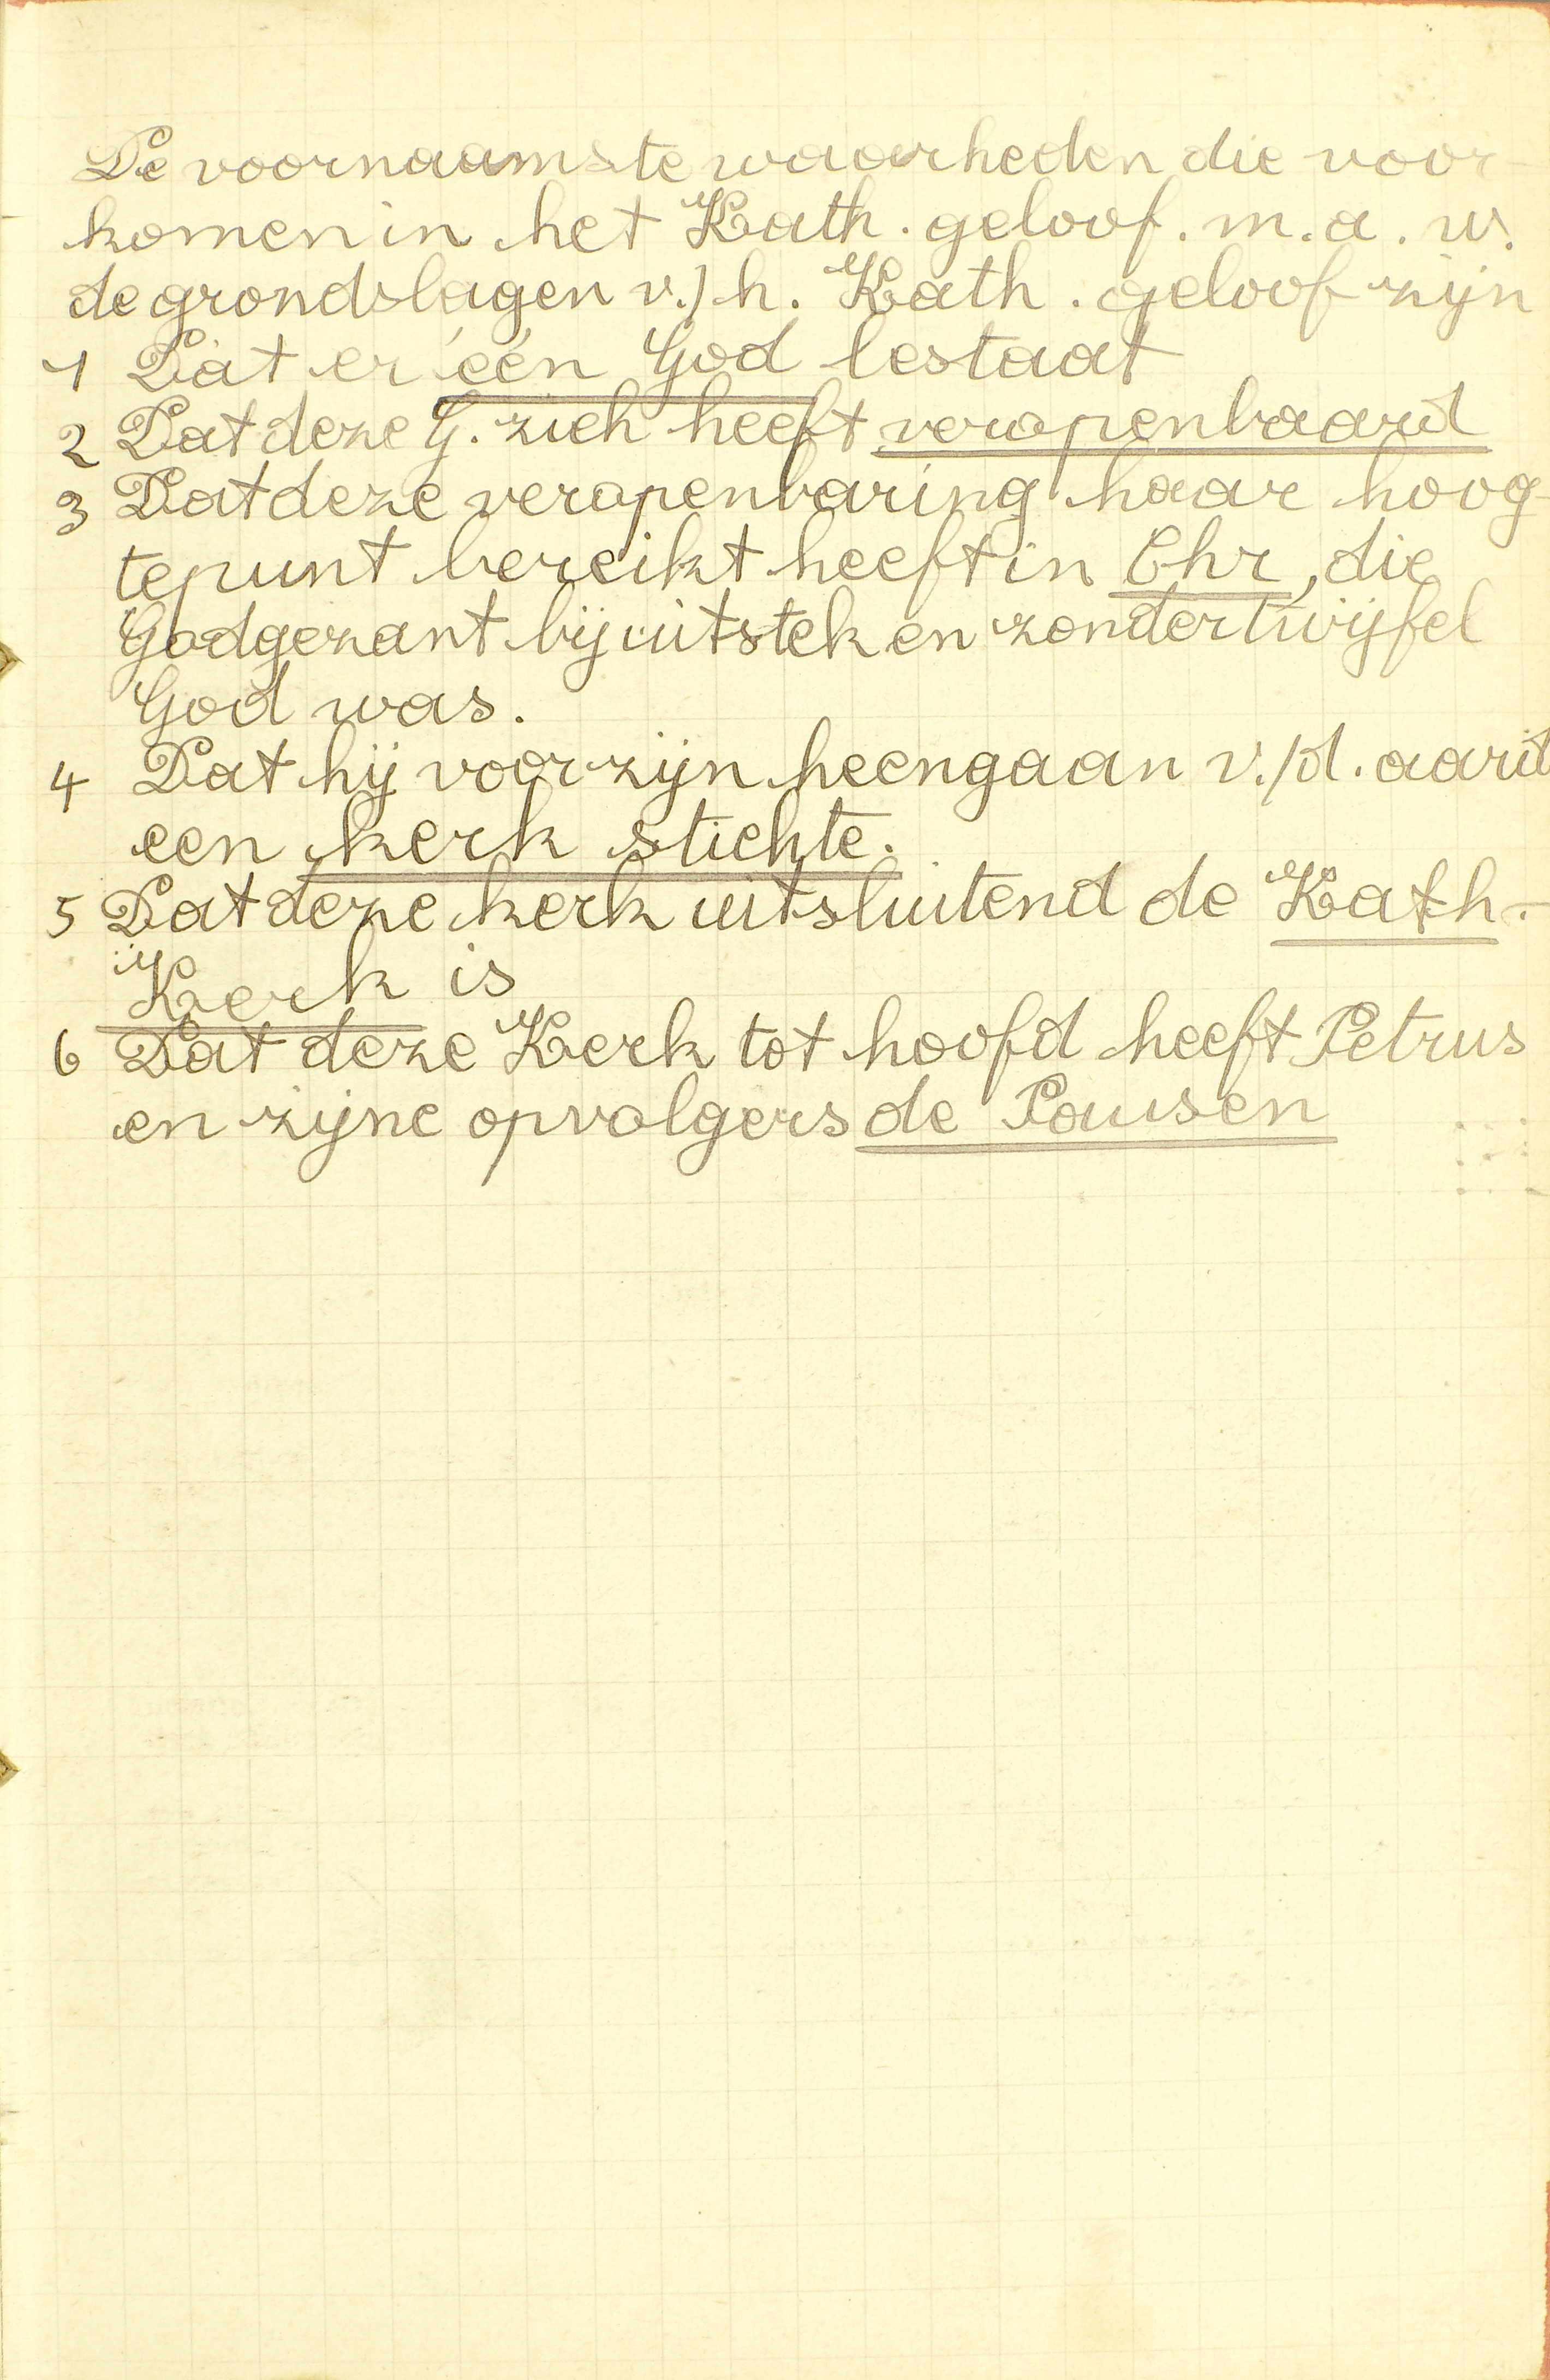 De voornaamste waarheden die voor-
komen in het Kath. geloof. m.a.w.
de grondslagen v./h. Kath. geloof zijn
1 Dat er één God bestaat
2 Dat deze G. zich heeft veropenbaard
3 Dat deze veropenbaring haar hoog-
tepunt bereikt heeft in Chr, die
Godgezant bij uitstek en zonder twijfel
God was.
4 Dat hij voor zijn heengaan v./d. aard
een kerk stichte.
5 Dat deze kerk uitsluitend de Kath.
Kerk is
6 Dat deze Kerk tot hoofd heeft Petrus
en zijne opvolgers de Pausen